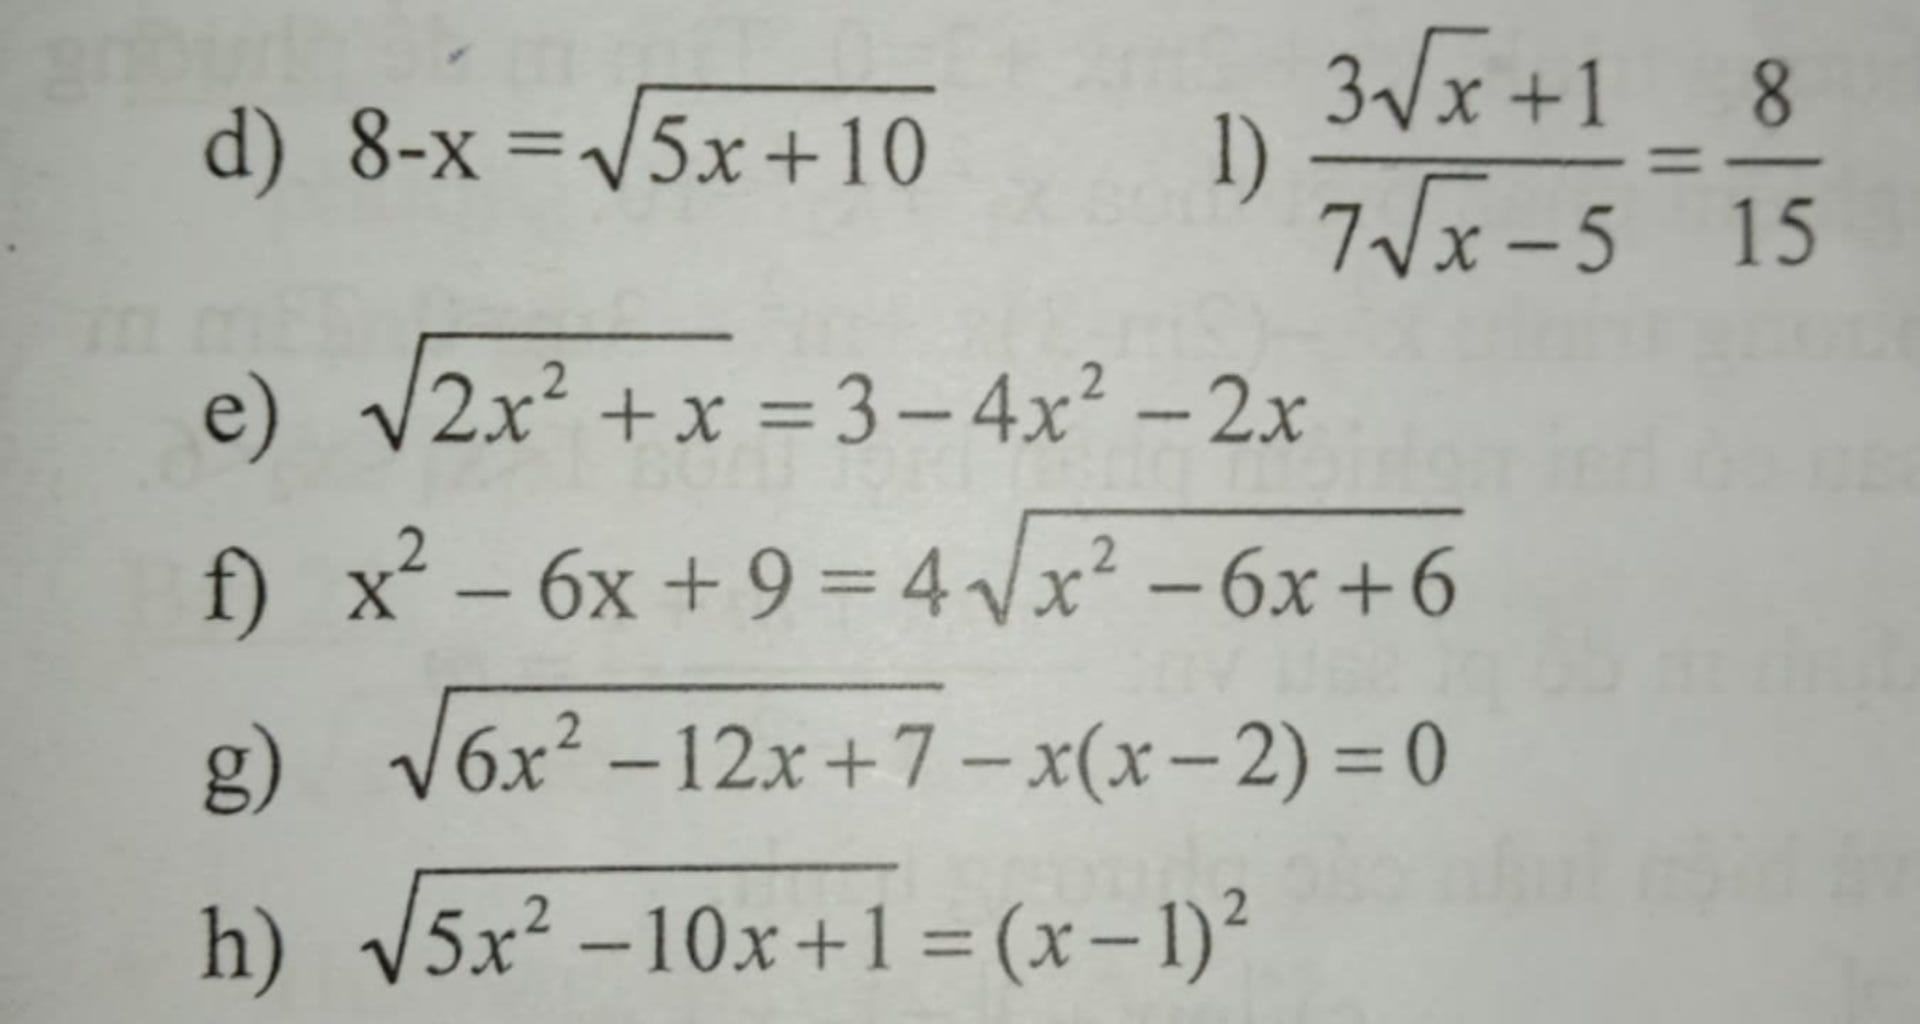 d) 8-x = √(5x+10)    l) (3√x + 1)/(7√x − 5) = 8/15
e) √(2x² + x) = 3 − 4x² − 2x
f) x² − 6x + 9 = 4√(x² − 6x + 6)
g) √(6x² − 12x + 7) − x(x − 2) = 0
h) √(5x² − 10x + 1) = (x − 1)²